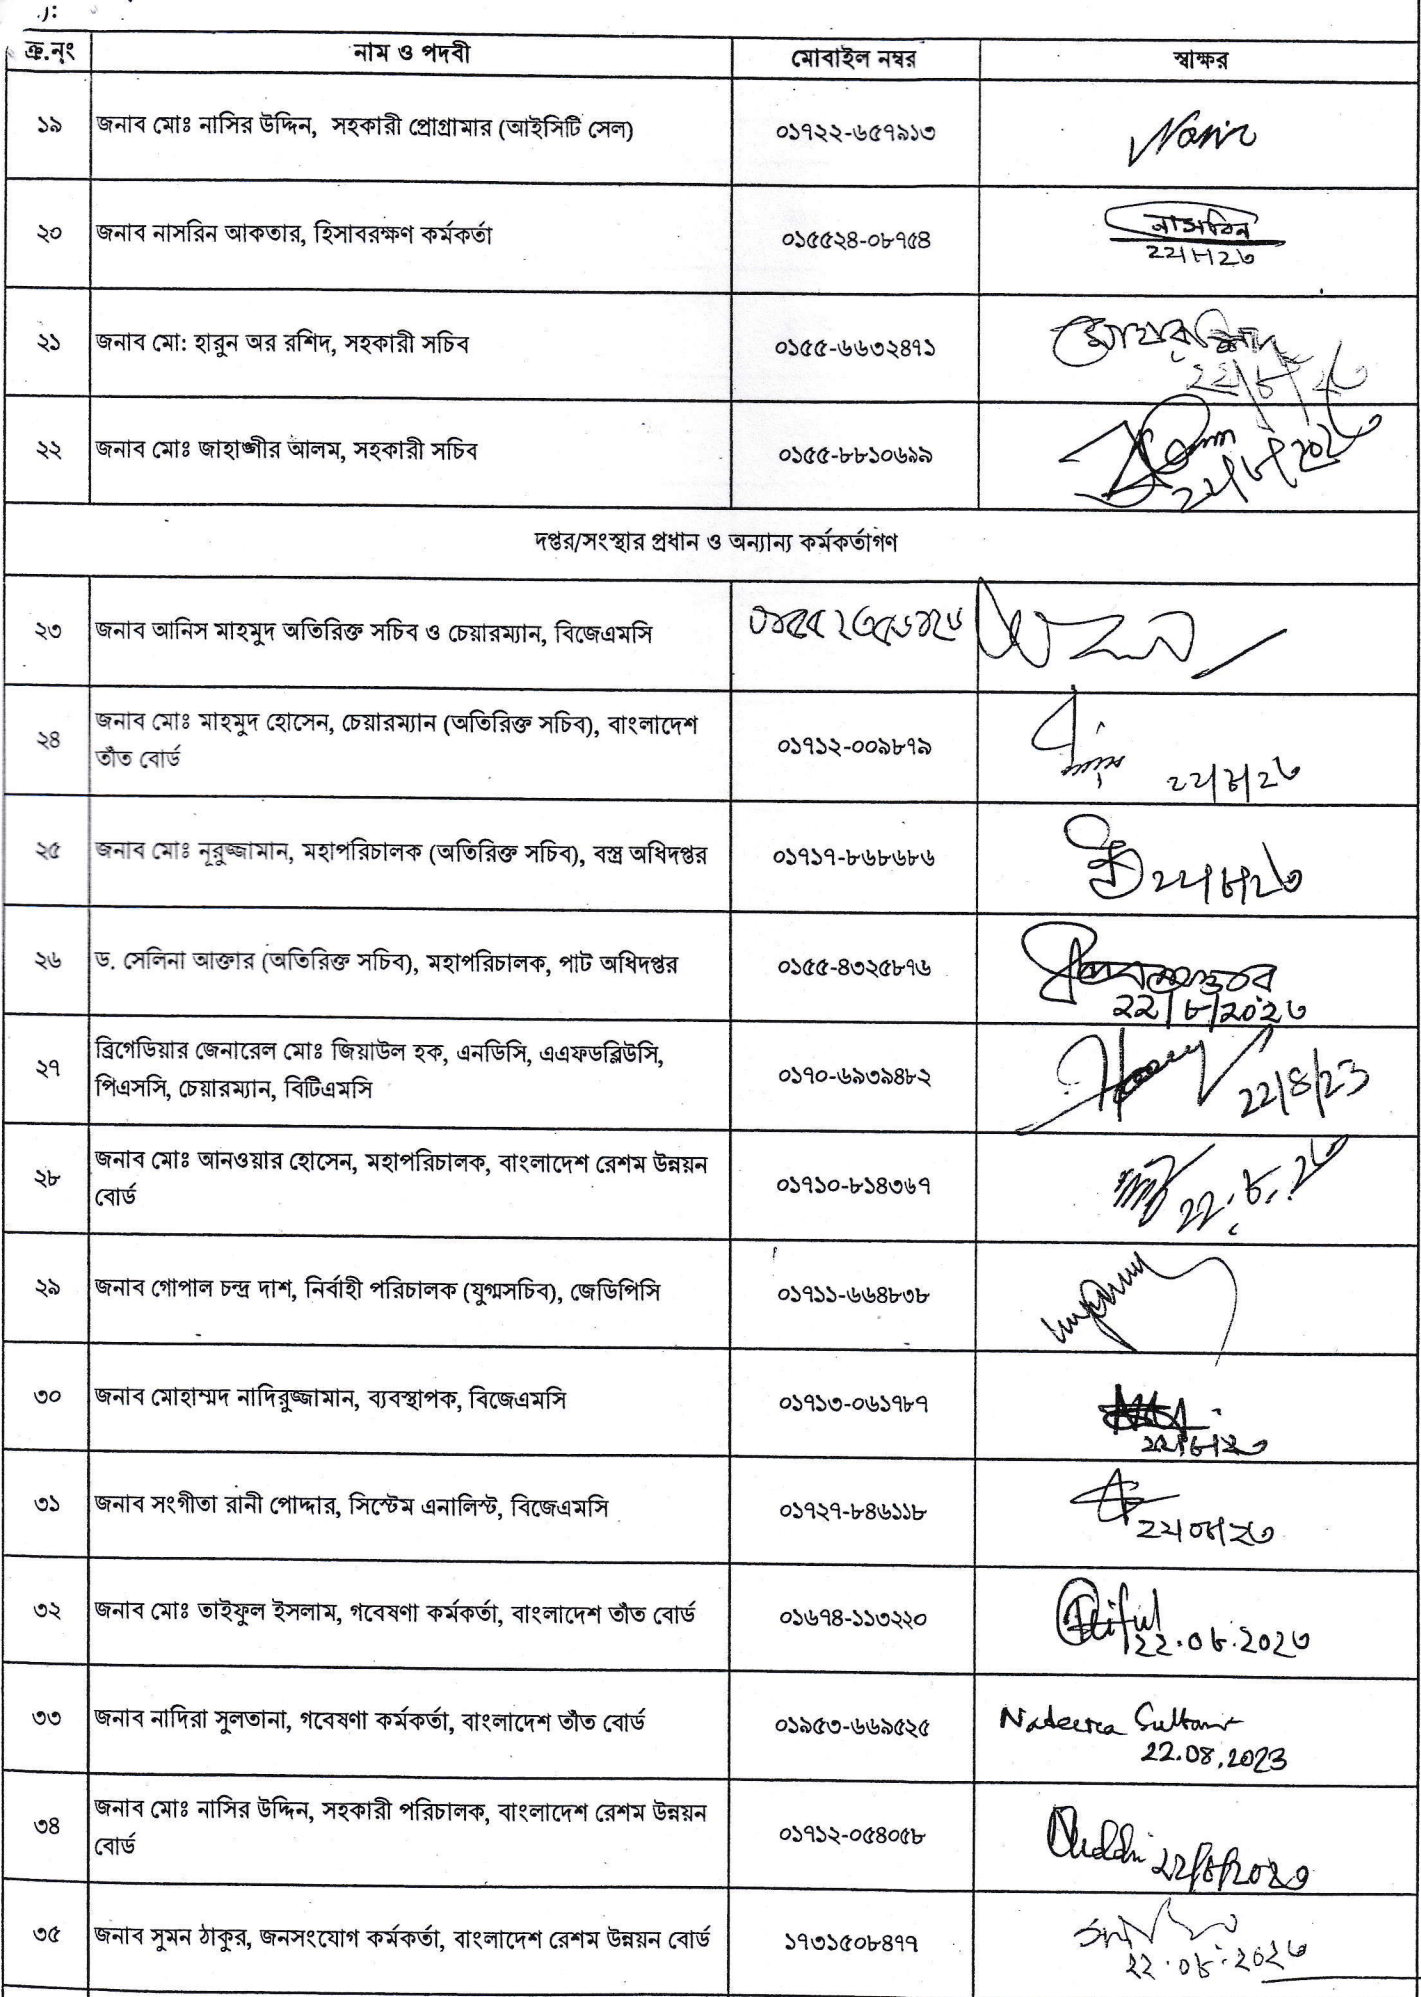 ক্র.নং নাম ও পদবী মোবাইল নম্বর স্বাক্ষর
১৯ জনাব মোঃ নাসির উদ্দিন, সহকারী প্রোগ্রামার (আইসিটি সেল) ০১৭২২-৬৫৭৯১৩ Nasir
২০ জনাব নাসরিন আকতার, হিসাবরক্ষণ কর্মকর্তা ০১৫৫২৪-০৮৭৫৪ নাসরিন
২২/৮/২৩
২১ জনাব মো: হারুন অর রশিদ, সহকারী সচিব ০১৫৫-৬৬৩২৪৭১
২২/৮/২৩
২২ জনাব মোঃ জাহাঙ্গীর আলম, সহকারী সচিব ০১৫৫-৮৮১০৬৯৯
২২/৮/২০২৩
দপ্তর/সংস্থার প্রধান ও অন্যান্য কর্মকর্তাগণ
২৩ জনাব আনিস মাহমুদ অতিরিক্ত সচিব ও চেয়ারম্যান, বিজেএমসি
২৪ জনাব মোঃ মাহমুদ হোসেন, চেয়ারম্যান (অতিরিক্ত সচিব), বাংলাদেশ
তাঁত বোর্ড ০১৭১২-০০৯৮৭৯ ২২/৮/২৩
২৫ জনাব মোঃ নূরুজ্জামান, মহাপরিচালক (অতিরিক্ত সচিব), বস্ত্র অধিদপ্তর ০১৭১৭-৮৬৮৬৮৬ ২২/৮/২৩
২৬ ড. সেলিনা আক্তার (অতিরিক্ত সচিব), মহাপরিচালক, পাট অধিদপ্তর ০১৫৫-৪৩২৫৮৭৬
২২/৮/২০২৩
২৭ ব্রিগেডিয়ার জেনারেল মোঃ জিয়াউল হক, এনডিসি, এএফডব্লিউসি,
পিএসসি, চেয়ারম্যান, বিটিএমসি ০১৭০-৬৯৩৯৪৮২ 22/8/23
২৮ জনাব মোঃ আনওয়ার হোসেন, মহাপরিচালক, বাংলাদেশ রেশম উন্নয়ন
বোর্ড ০১৭১০-৮১৪৩৬৭ ২২.৮.২৩
২৯ জনাব গোপাল চন্দ্র দাশ, নির্বাহী পরিচালক (যুগ্মসচিব), জেডিপিসি ০১৭১১-৬৬৪৮৩৮
৩০ জনাব মোহাম্মদ নাদিরুজ্জামান, ব্যবস্থাপক, বিজেএমসি ০১৭১৩-০৬১৭৮৭
২২/৮/২৩
৩১ জনাব সংগীতা রানী পোদ্দার, সিস্টেম এনালিস্ট, বিজেএমসি ০১৭২৭-৮৪৬১১৮
২২/০৮/২৩
৩২ জনাব মোঃ তাইফুল ইসলাম, গবেষণা কর্মকর্তা, বাংলাদেশ তাঁত বোর্ড ০১৬৭৪-১১৩২২০ Taiful
২২.০৮.২০২৩
৩৩ জনাব নাদিরা সুলতানা, গবেষণা কর্মকর্তা, বাংলাদেশ তাঁত বোর্ড ০১৯৫৩-৬৬৯৫২৫ Nadeera Sultana
22.08.2023
৩৪ জনাব মোঃ নাসির উদ্দিন, সহকারী পরিচালক, বাংলাদেশ রেশম উন্নয়ন
বোর্ড ০১৭১২-০৫৪০৫৮ ২২/৮/২০২৩
৩৫ জনাব সুমন ঠাকুর, জনসংযোগ কর্মকর্তা, বাংলাদেশ রেশম উন্নয়ন বোর্ড ১৭৩১৫০৮৪৭৭
২২.০৮.২০২৩